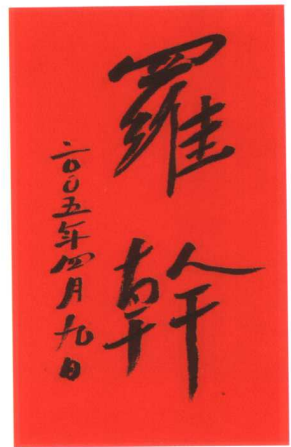 羅幹
二〇〇五年四月九日